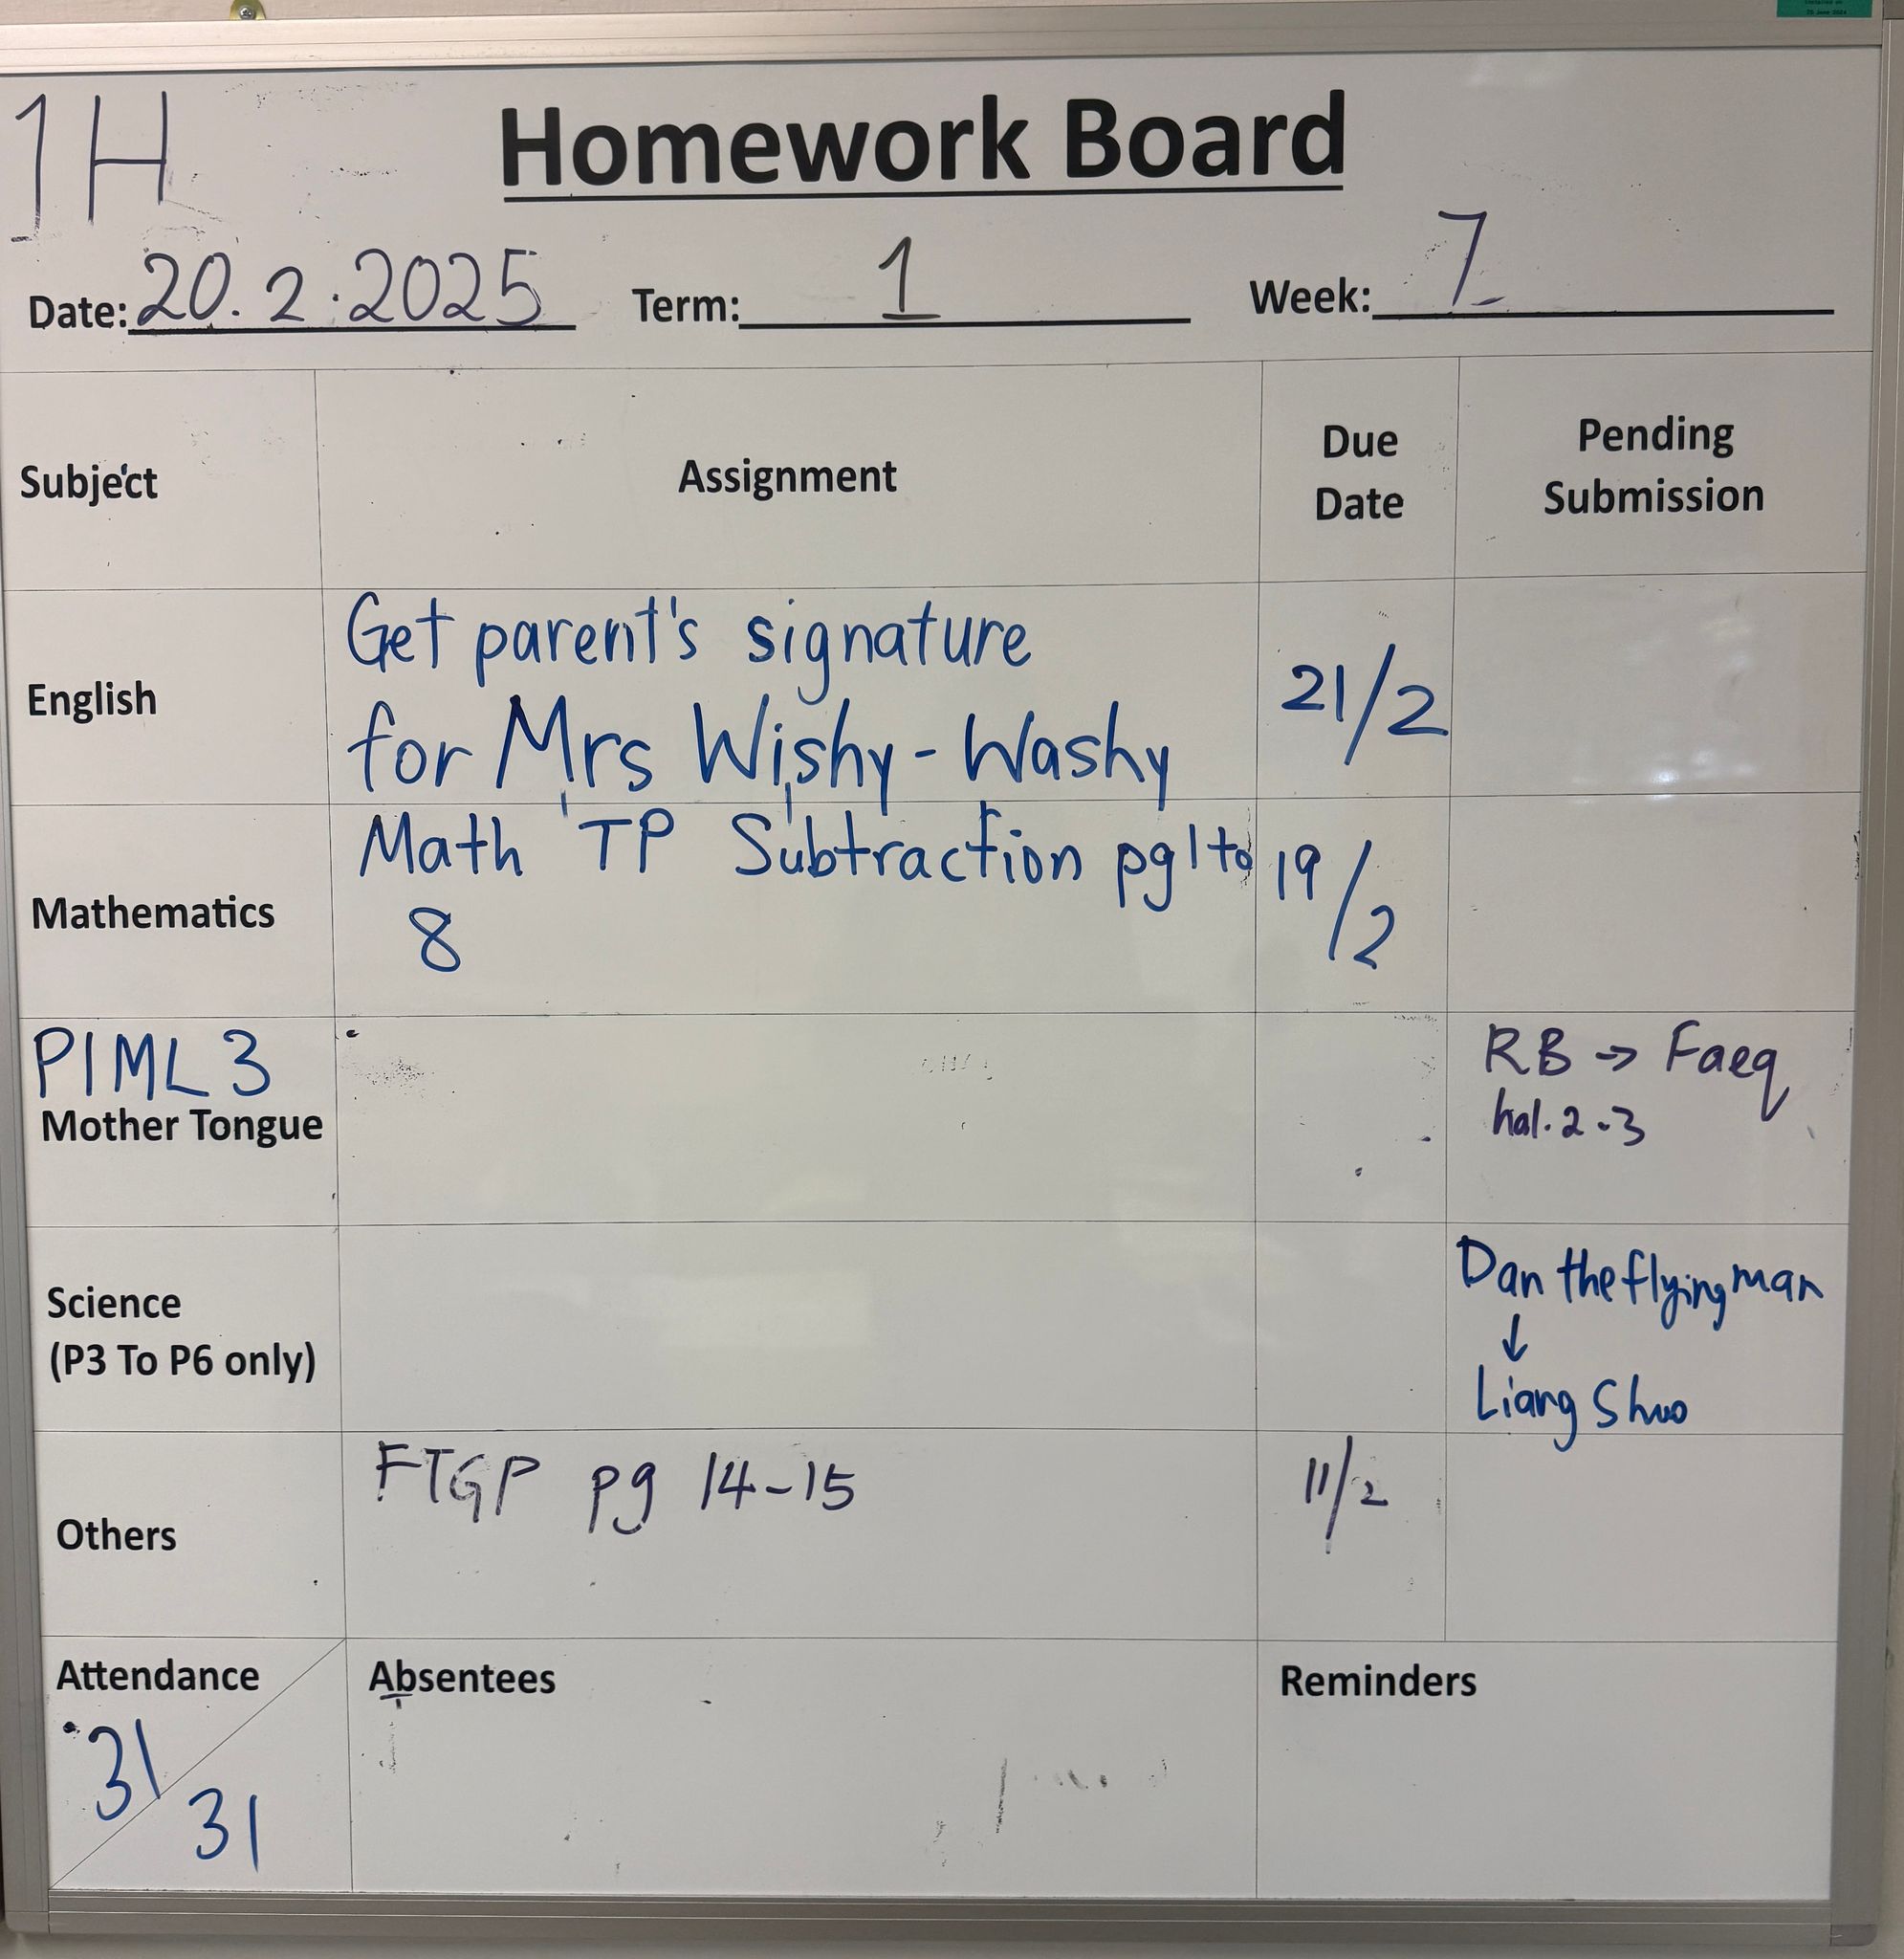 1H
Homework Board
Date: 20.2.2025 Term: 1 Week: 7
Subject Assignment Due Date Pending Submission
English
Get parent's signature
for Mrs Wishy-Washy
21/2
Mathematics
Math TP Subtraction pg 1 to
8
19/2
PIML 3
Mother Tongue
RB → Faeq
hal. 2-3
Science
(P3 To P6 only)
Dan the flying man
↓
Liang Shuo
Others
FTGP pg 14-15
11/2
Attendance
31
31
Absentees
Reminders